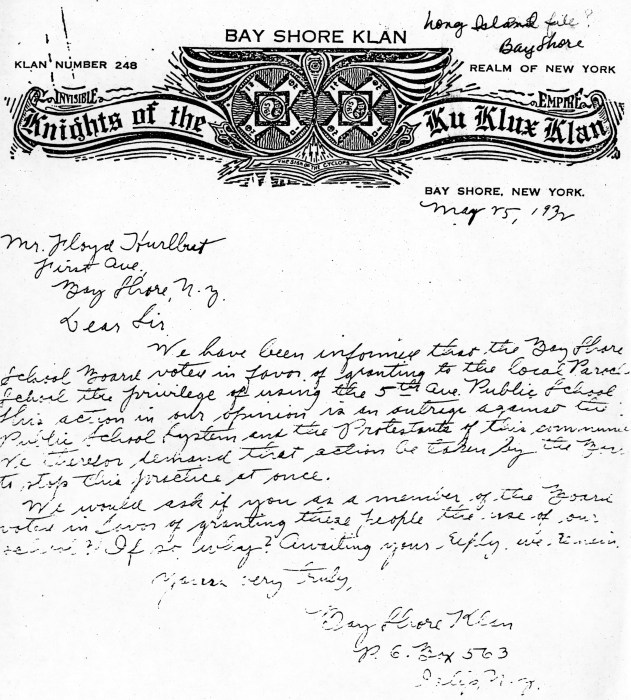 Long Island file?
Bay Shore
BAY SHORE KLAN
KLAN NUMBER 248
REALM OF NEW YORK
INVISIBLE
EMPIRE
Knights of the
Ku Klux Klan
THE SIGN OF THE CYCLOPS
BAY SHORE, NEW YORK.
May 25, 1932
Mr. Floyd Hurlbut
First Ave,
Bay Shore, N.Y.
Dear Sir
We have been informed that the Bay Shore
School Board voted in favor of granting to the local Paroc
School the privilege of using the 5th Ave. Public School
This action in our opinion is an outrige against the
Public School System and the Protestants of this commun
We therefor demand that action be taken by the
to stop this practice at once.
We would ask if you as a member of the Board
voted in favor of granting these people the use of our
school? If so why? Awaiting your reply, we remain
Yours very truly,
Bay Shore Klan
P.O. Box 563
Islip N.Y.